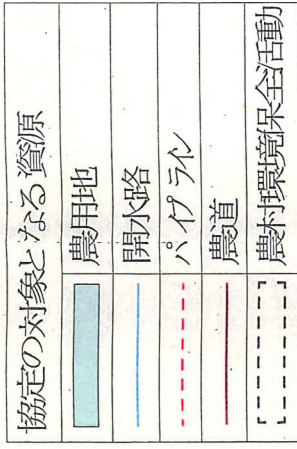 協定の対象となる資源
農用地
開水路
パイプライン
農道
農村環境保全活動